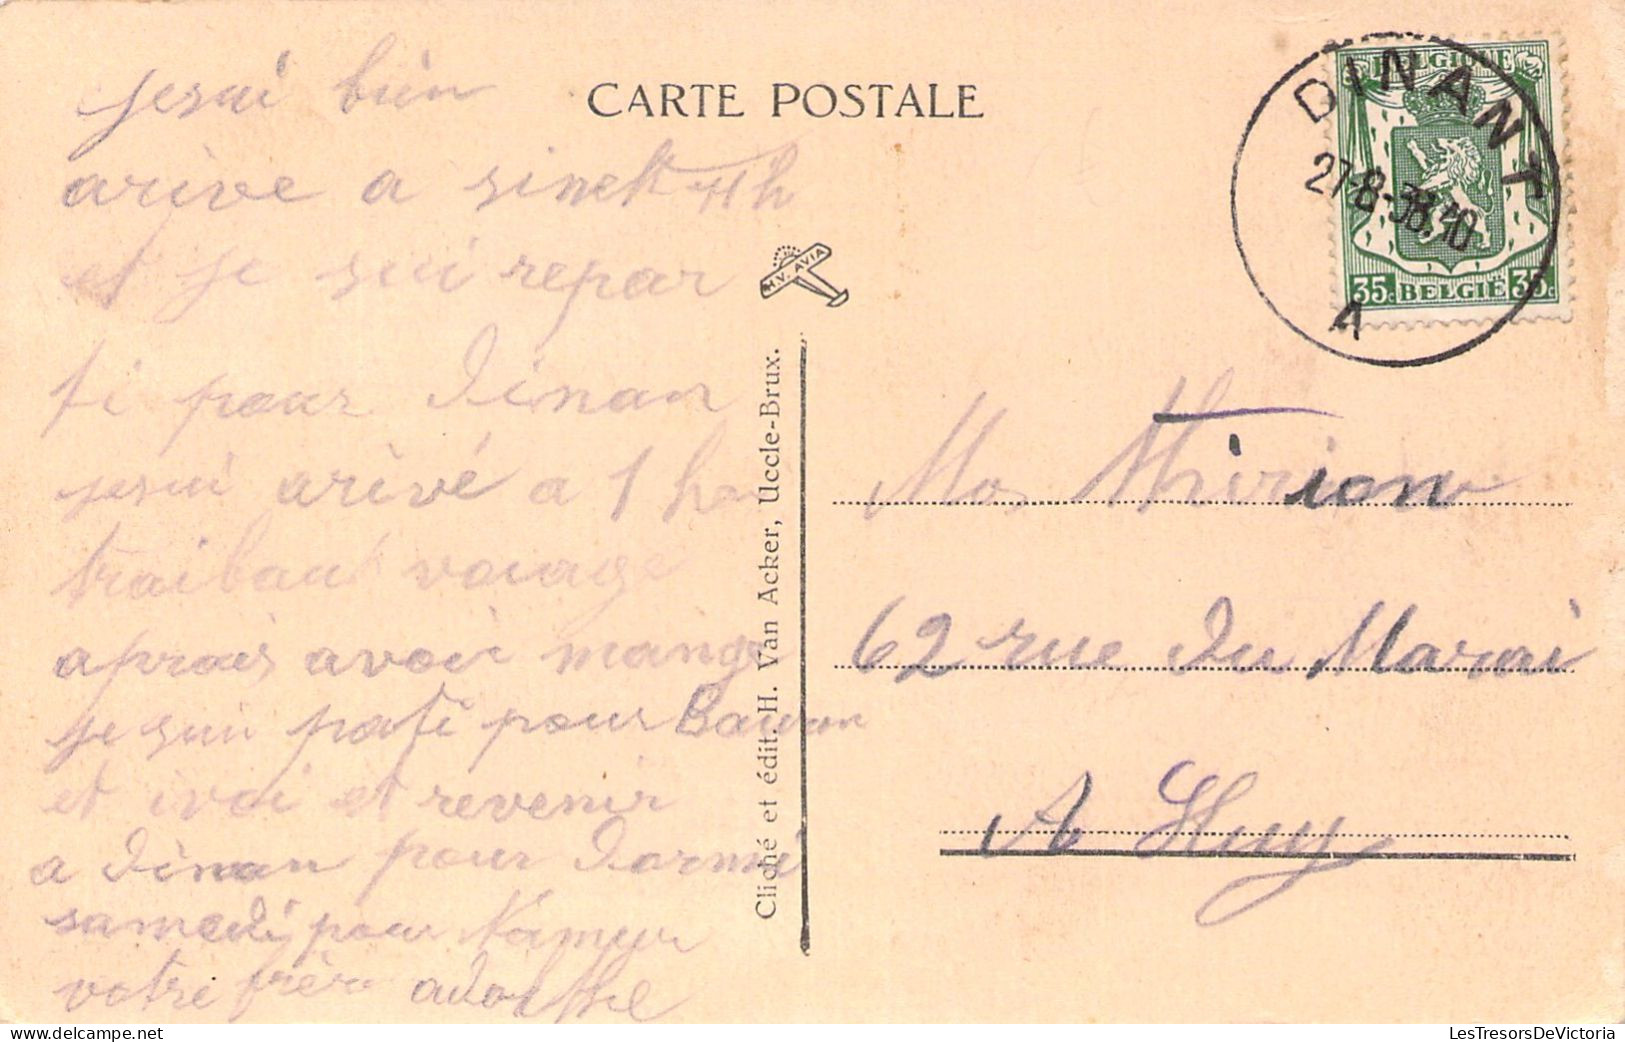 jesui bien
arive a sinek 11h
et je sui repar
ti pour dinan
jesui arivé a 1 h
traibaut voiage
aprais avoir mange
je sui pati pour Bauran
et ivoi et revenir
a dinan pour dormi
samedi pour Namur
votre frère adolthe
CARTE POSTALE
H.V. AVIA
Cliché et édit. H. Van Acker, Uccle-Brux.
BELGIQUE
35c BELGIË 35c
DINANT
27-8-38.10
A
Mos Thirion
62 rue du Marai
A Huy
LesTresorsDeVictoria
delcampe.net